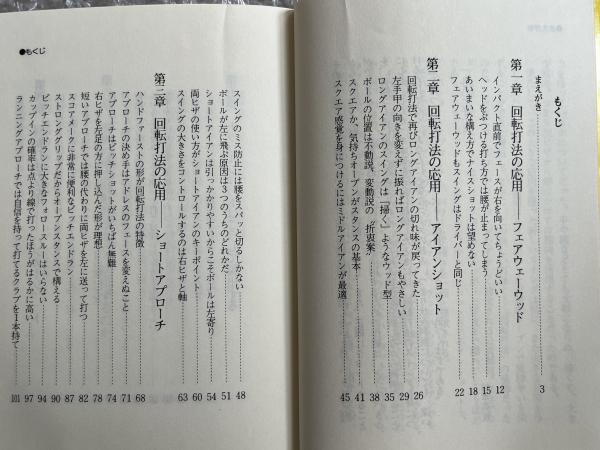 もくじ
まえがき……3
第一章 回転打法の応用――フェアウェーウッド
インパクト直前でフェースが右を向いてちょうどいい……12
ヘッドをぶつける打ち方では腰が止まってしまう……15
あいまいな構え方でナイスショットは望めない……18
フェアウェーウッドもスイングはドライバーと同じ……22
第二章 回転打法の応用――アイアンショット
回転打法で再びロングアイアンの切れ味が戻ってきた……26
左手甲の向きを変えずに振ればロングアイアンもやさしい……29
ロングアイアンのスイングは『掃く』ようなウッド型……35
ボールの位置は不動説、変動説の〝折衷案〟……38
スクエアか、気持ちオープンがスタンスの基本……41
スクエア感覚を身につけるにはミドルアイアンが最適……45
スイングのミス防止には腰をスパッと切るしかない……48
ボールが左に飛ぶ原因は3つのうちのどれかだ……51
ショートアイアンは引っかかりやすいからこそボールは左寄り……54
両ヒザの使い方がショートアイアンのキーポイント……60
スイングの大きさをコントロールするのは右ヒザと軸……63
第三章 回転打法の応用――ショートアプローチ
ハンドファーストの形が回転打法の特徴……68
アプローチの決め手はアドレスのフェースを変えぬこと……71
アプローチはピッチショットがいちばん無難……74
右ヒザを左足の方に押し込んだ形が理想……78
短いアプローチでは腰の代わりに両ヒザを左に送って打つ……82
スコアメークに非常に便利なピッチエンドラン……87
ストロンググリップだからオープンスタンスで構える……90
ピッチエンドランに大きなフォロースルーはいらない……94
カップインの確率は点より線で打ったほうがはるかに高い……97
ランニングアプローチでは自信を持って打てるクラブを1本持て……101
●もくじ